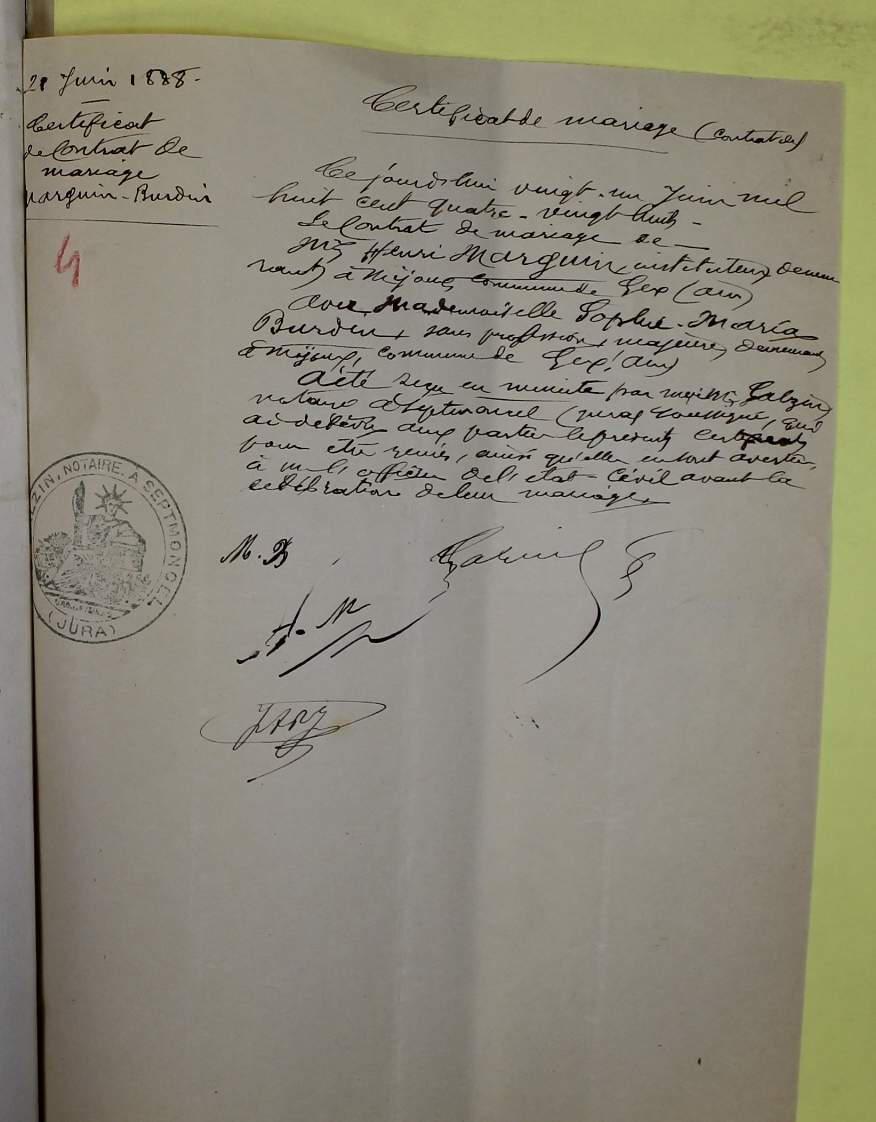 21 Juin 1888.
Certificat
de Contrat de
mariage
Marguin-Burdin
4
Certificat de mariage (contrat de)
Ce jourd'hui vingt-un Juin mil
huit cent quatre-vingt huit
Le Contrat de mariage de
Mr Henri Marguin, instituteur, demeu
rant à Mijoux commune de Gex (ain)
avec Mademoiselle Sophie-Maria
Burdin, sans profession, majeure, demeurant
à Mijoux, commune de Gex (ain)
a été reçu en minute par moi Me Galzin,
notaire à Septmoncel (Jura) soussigné, qui
ai délivré aux parties le présent certificat
pour être remis, ainsi qu'elles en sont averties,
à M. l'officier de l'état-Civil avant la
célébration de leur mariage.
GALZIN, NOTAIRE, A SEPTMONCEL
(JURA)
M. B
Galzin
H. M